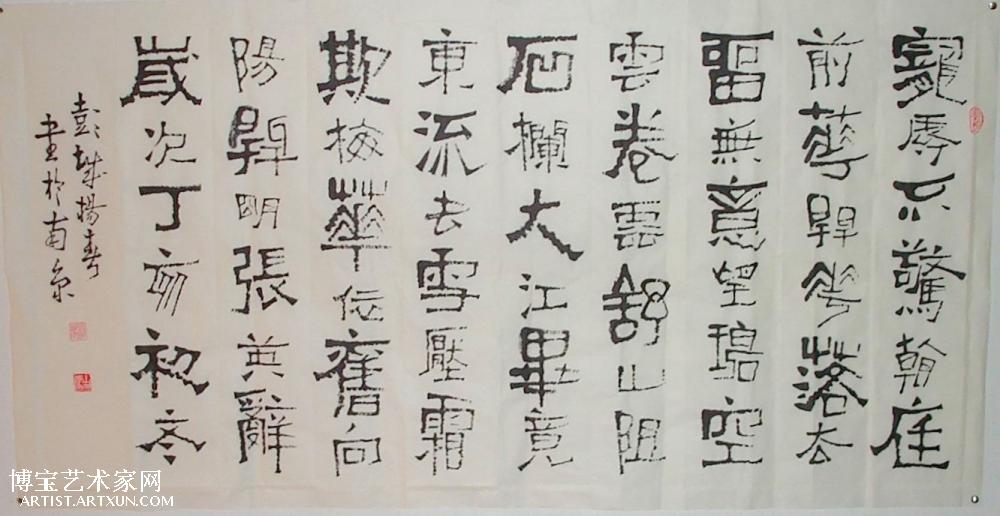 寵辱不驚翰庭
前花開花落去
留無意望碧空
雲卷雲舒山阻
石欄大江畢竟
東流去雪壓霜
欺梅華依舊向
陽開明張英辭
歲次丁亥初冬
彭城揚春
書於南京
博宝艺术家网
ARTIST.ARTXUN.COM